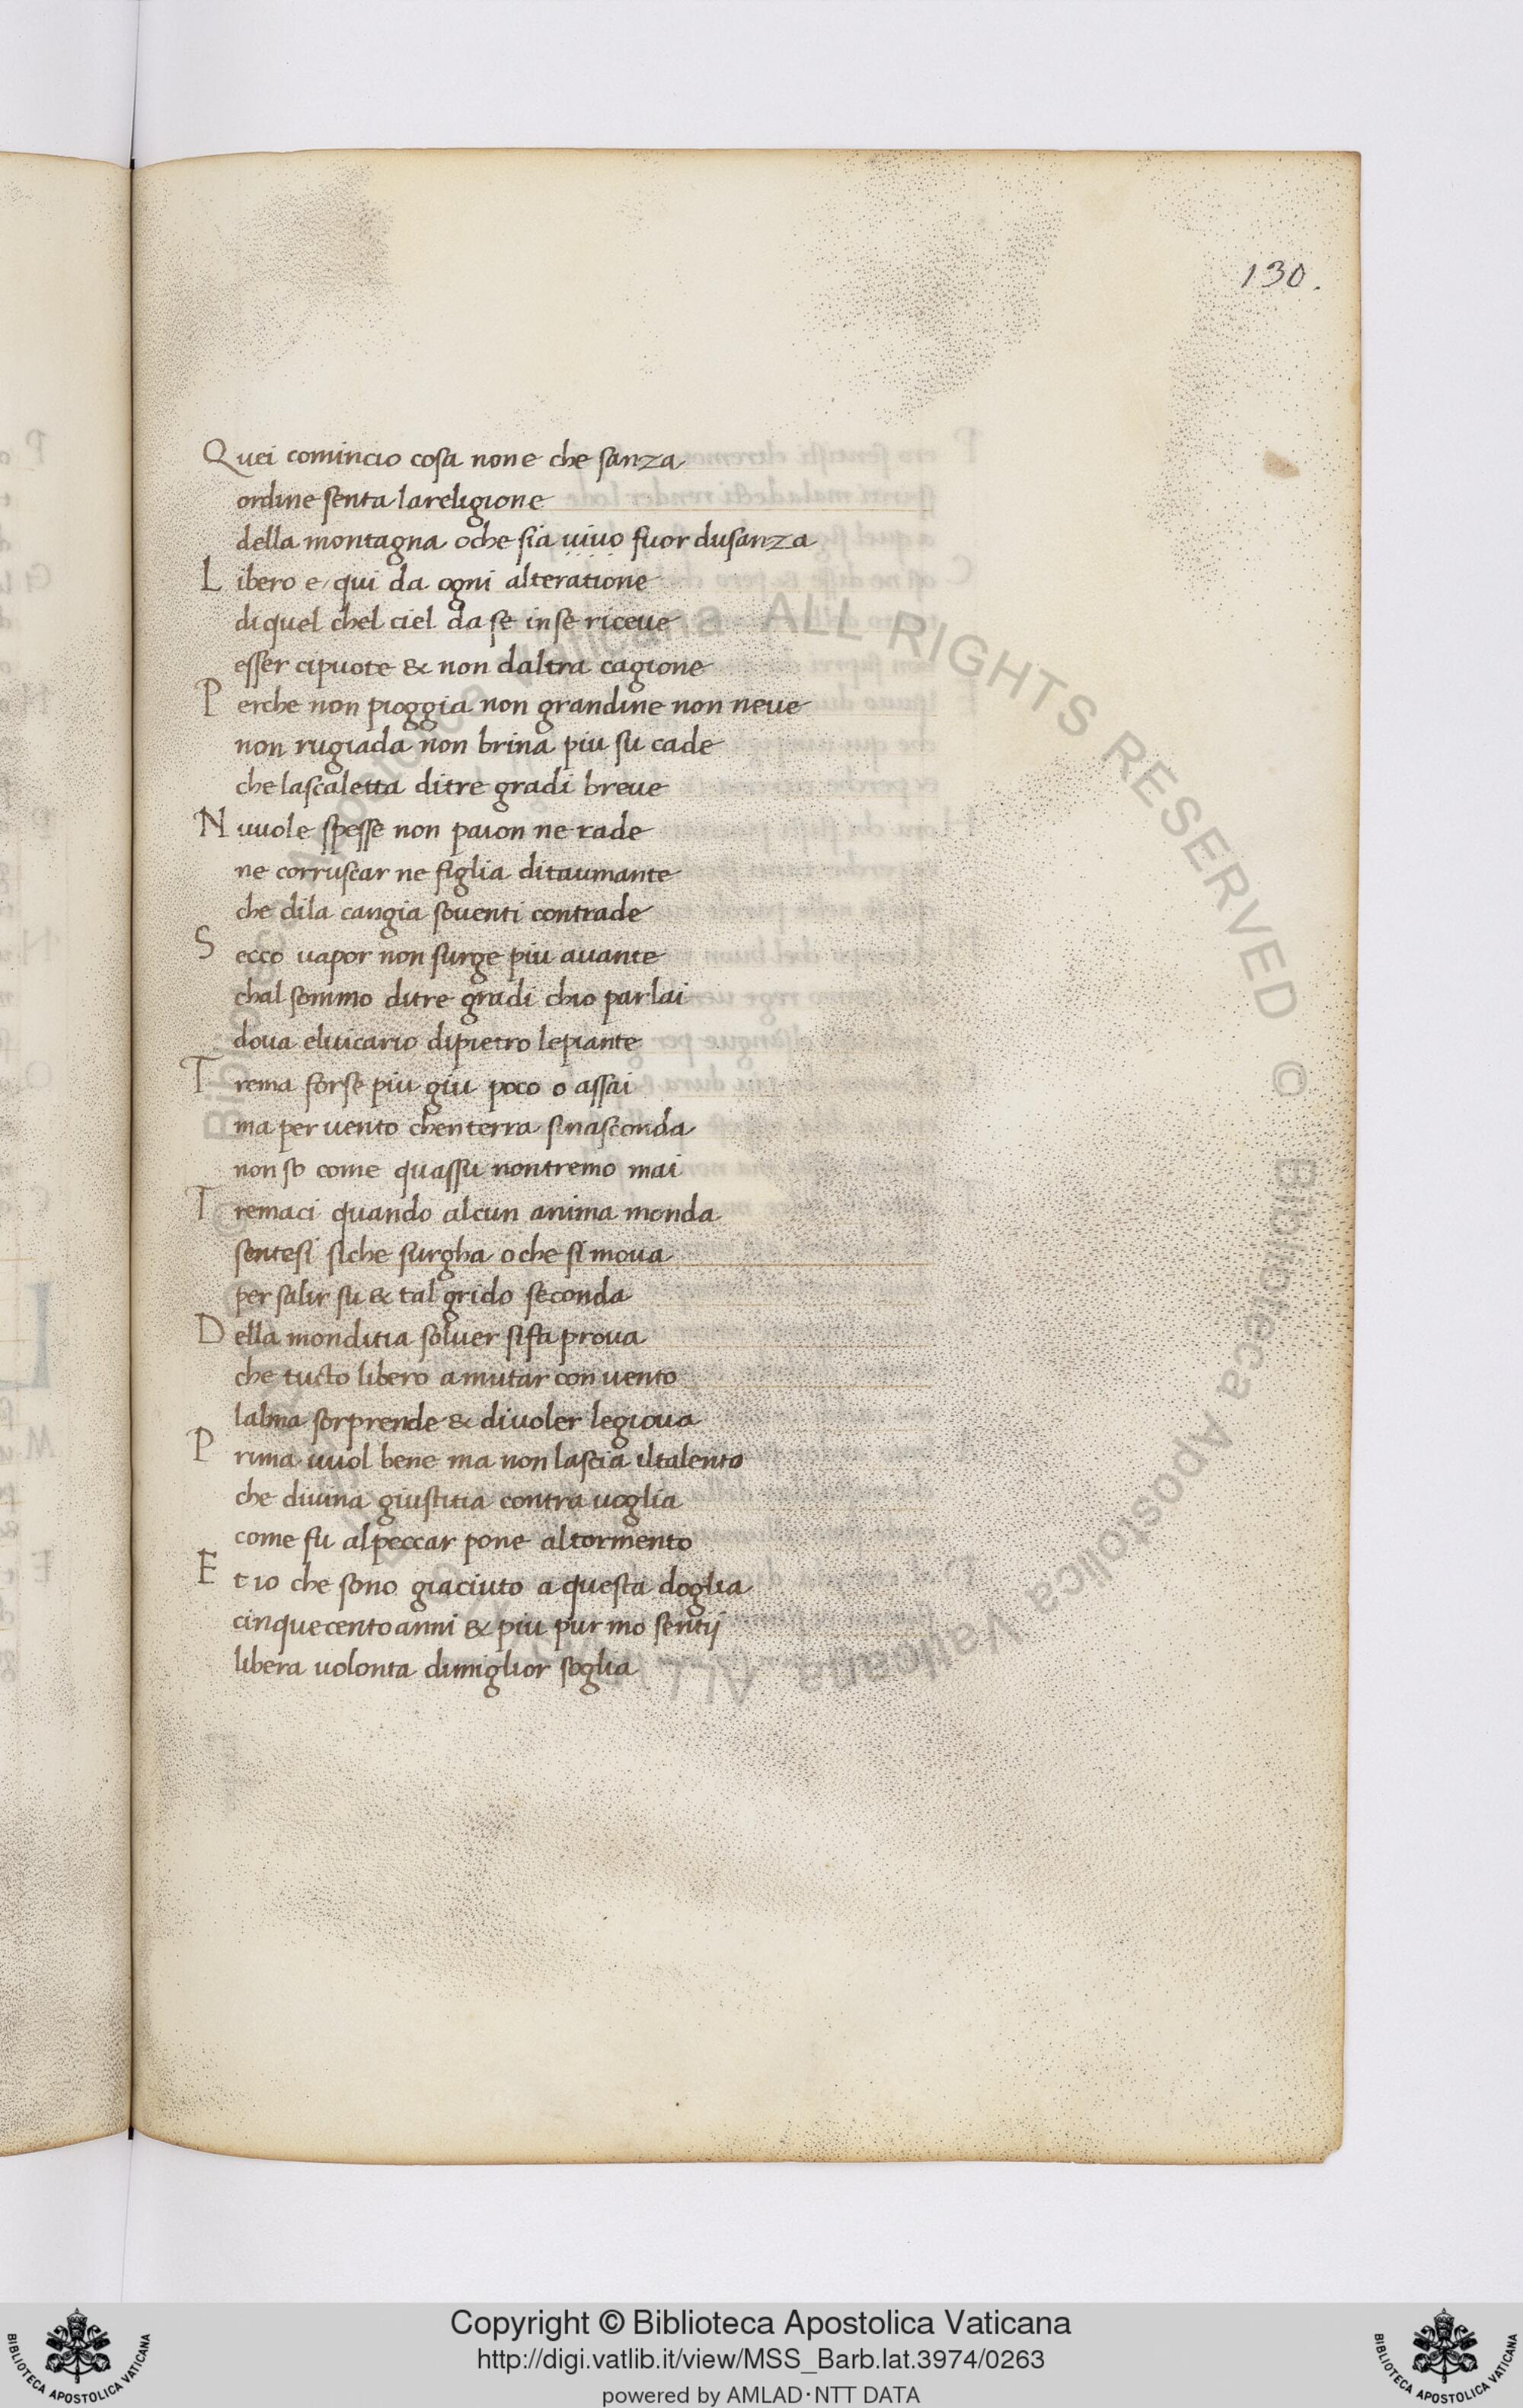 130.
Quei comincio cosa none che sanza
ordine senta lareligione
della montagna oche sia uiuo fuor dusanza
Libero e qui da ogni alteratione
diquel chel ciel da se inse riceue
esser cipuote & non daltra cagione
Perche non pioggia non grandine non neue
non rugiada non brina piu su cade
che lascaletta ditre gradi breue
Nuuole spesse non paion ne rade
ne corruscar ne figlia ditaumante
che dila cangia souenti contrade
Secco uapor non surge piu auante
chal sommo ditre gradi chio parlai
doua eluicario dipietro lepiante
Trema forse piu giu poco o assai
ma per uento chenterra sinasconda
non so come quassu nontremo mai
Tremaci quando alcun anima monda
sentesi siche surgha oche si moua
per salir su & tal grido seconda
Della monditia soluer sifa proua
che tucto libero amutar con uento
lalma sorprende & diuoler legioua
Prima uuol bene ma non lascia iltalento
che diuina giustitia contra uoglia
come fu alpeccar pone altormento
Et io che sono giaciuto a questa doglia
cinquecento anni & piu pur mo sentij
libera uolonta dimiglior soglia
© Biblioteca Apostolica Vaticana ALL RIGHTS RESERVED © Biblioteca Apostolica Vaticana ALL
Copyright © Biblioteca Apostolica Vaticana
http://digi.vatlib.it/view/MSS_Barb.lat.3974/0263
powered by AMLAD·NTT DATA
BIBLIOTECA APOSTOLICA VATICANA
BIBLIOTECA APOSTOLICA VATICANA